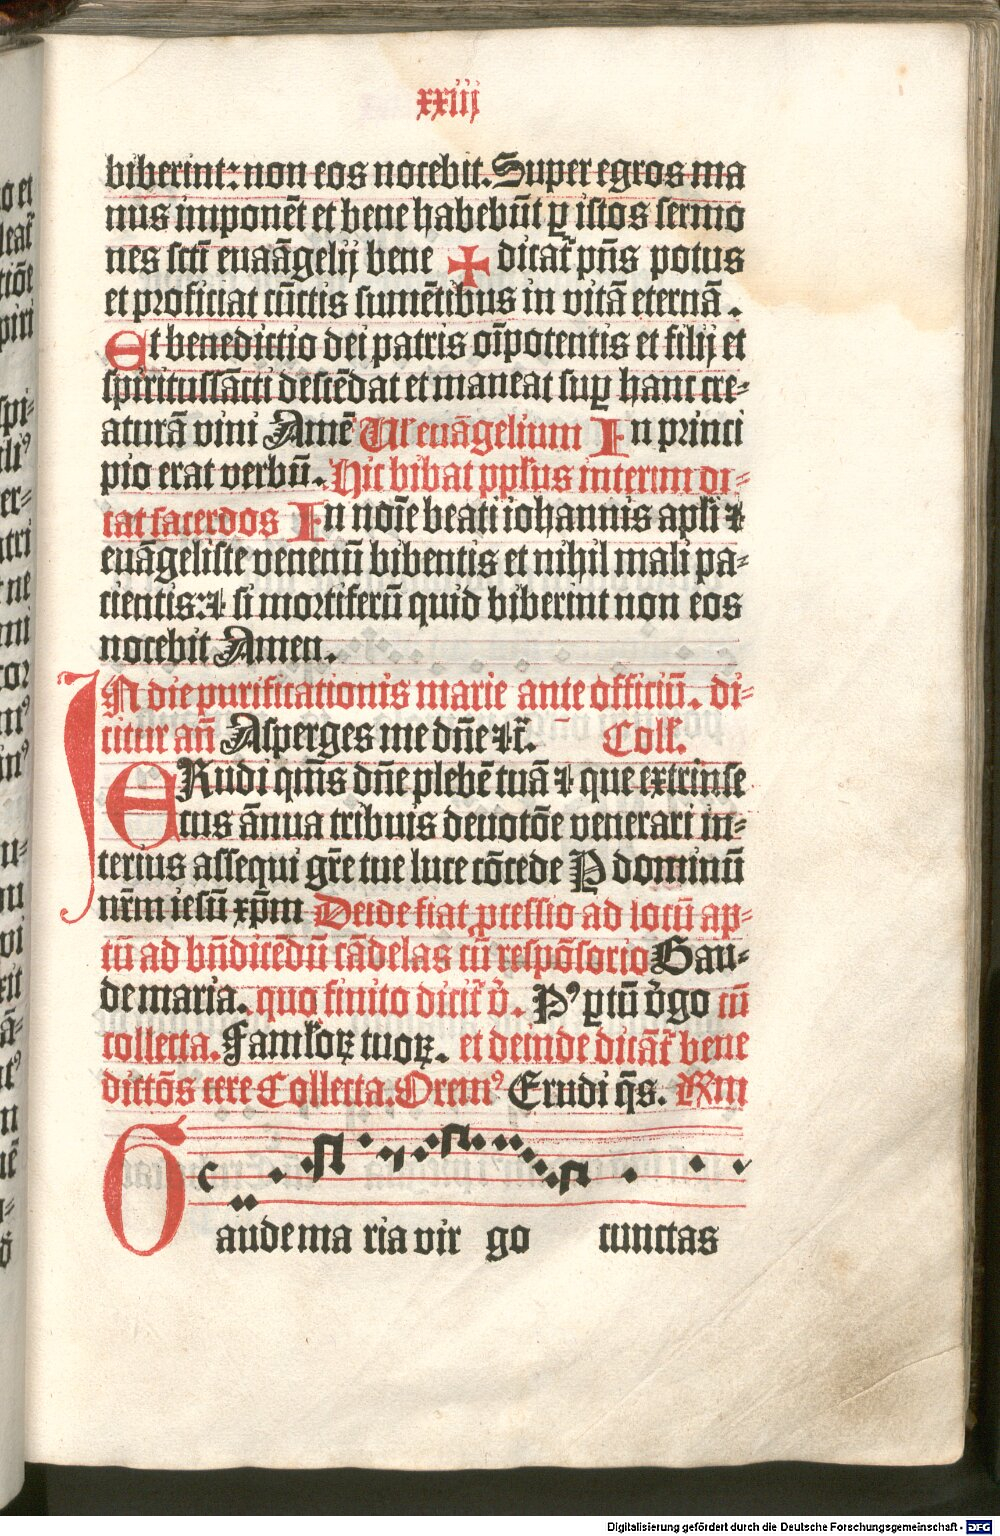 xxiij
biberint: non eos nocebit. Super egros ma
nus imponēt et bene habebūt ꝑ istos sermo
nes sctī euaāgelij bene ✠ dicat̄ pn̄s potus
et proficiat cūctis sumētibus in vitā eternā .
Et benedictio dei patris oīpotentis et filij et
spiritussācti descēdat et maneat suꝑ hanc cre⸗
aturā vini Amē Uel euāgelium In princi
pio erat verbū. Hic bibat ppłus interim di⸗
cat sacerdos In noīe beati iohannis apłi ⁊
euāgeliste venenū bibentis et nihil mali pa⸗
cientis: ⁊ si mortiferū quid biberint non eos
nocebit Amen.
IN die purificationis marie ante officiū. di⸗
citur an̄ Asperges me dn̄e ⁊c̄. Coll.
ERudi qm̄s dn̄e plebē tuā ⁊ que extrinse
cus ānua tribuis deuotōe venerari in⸗
terius assequi gr̄e tue luce cōcede P dominū
nr̄m iesū xp̄m Deīde fiat ꝓcessio ad locū ap⸗
tū ad bn̄dicēdū cādelas cū respōsorio Gau⸗
de maria. quo finito dicit̄ v̄. Pꝰ ꝑtū v̄go cū
collecta. Famłoꝝ tuoꝝ. et deinde dicāt̄ bene
dictōs cere Collecta. Oremꝰ Erudi q̄s. Rm
Gaude ma ria vir go cunctas
Digitalisierung gefördert durch die Deutsche Forschungsgemeinschaft - DFG